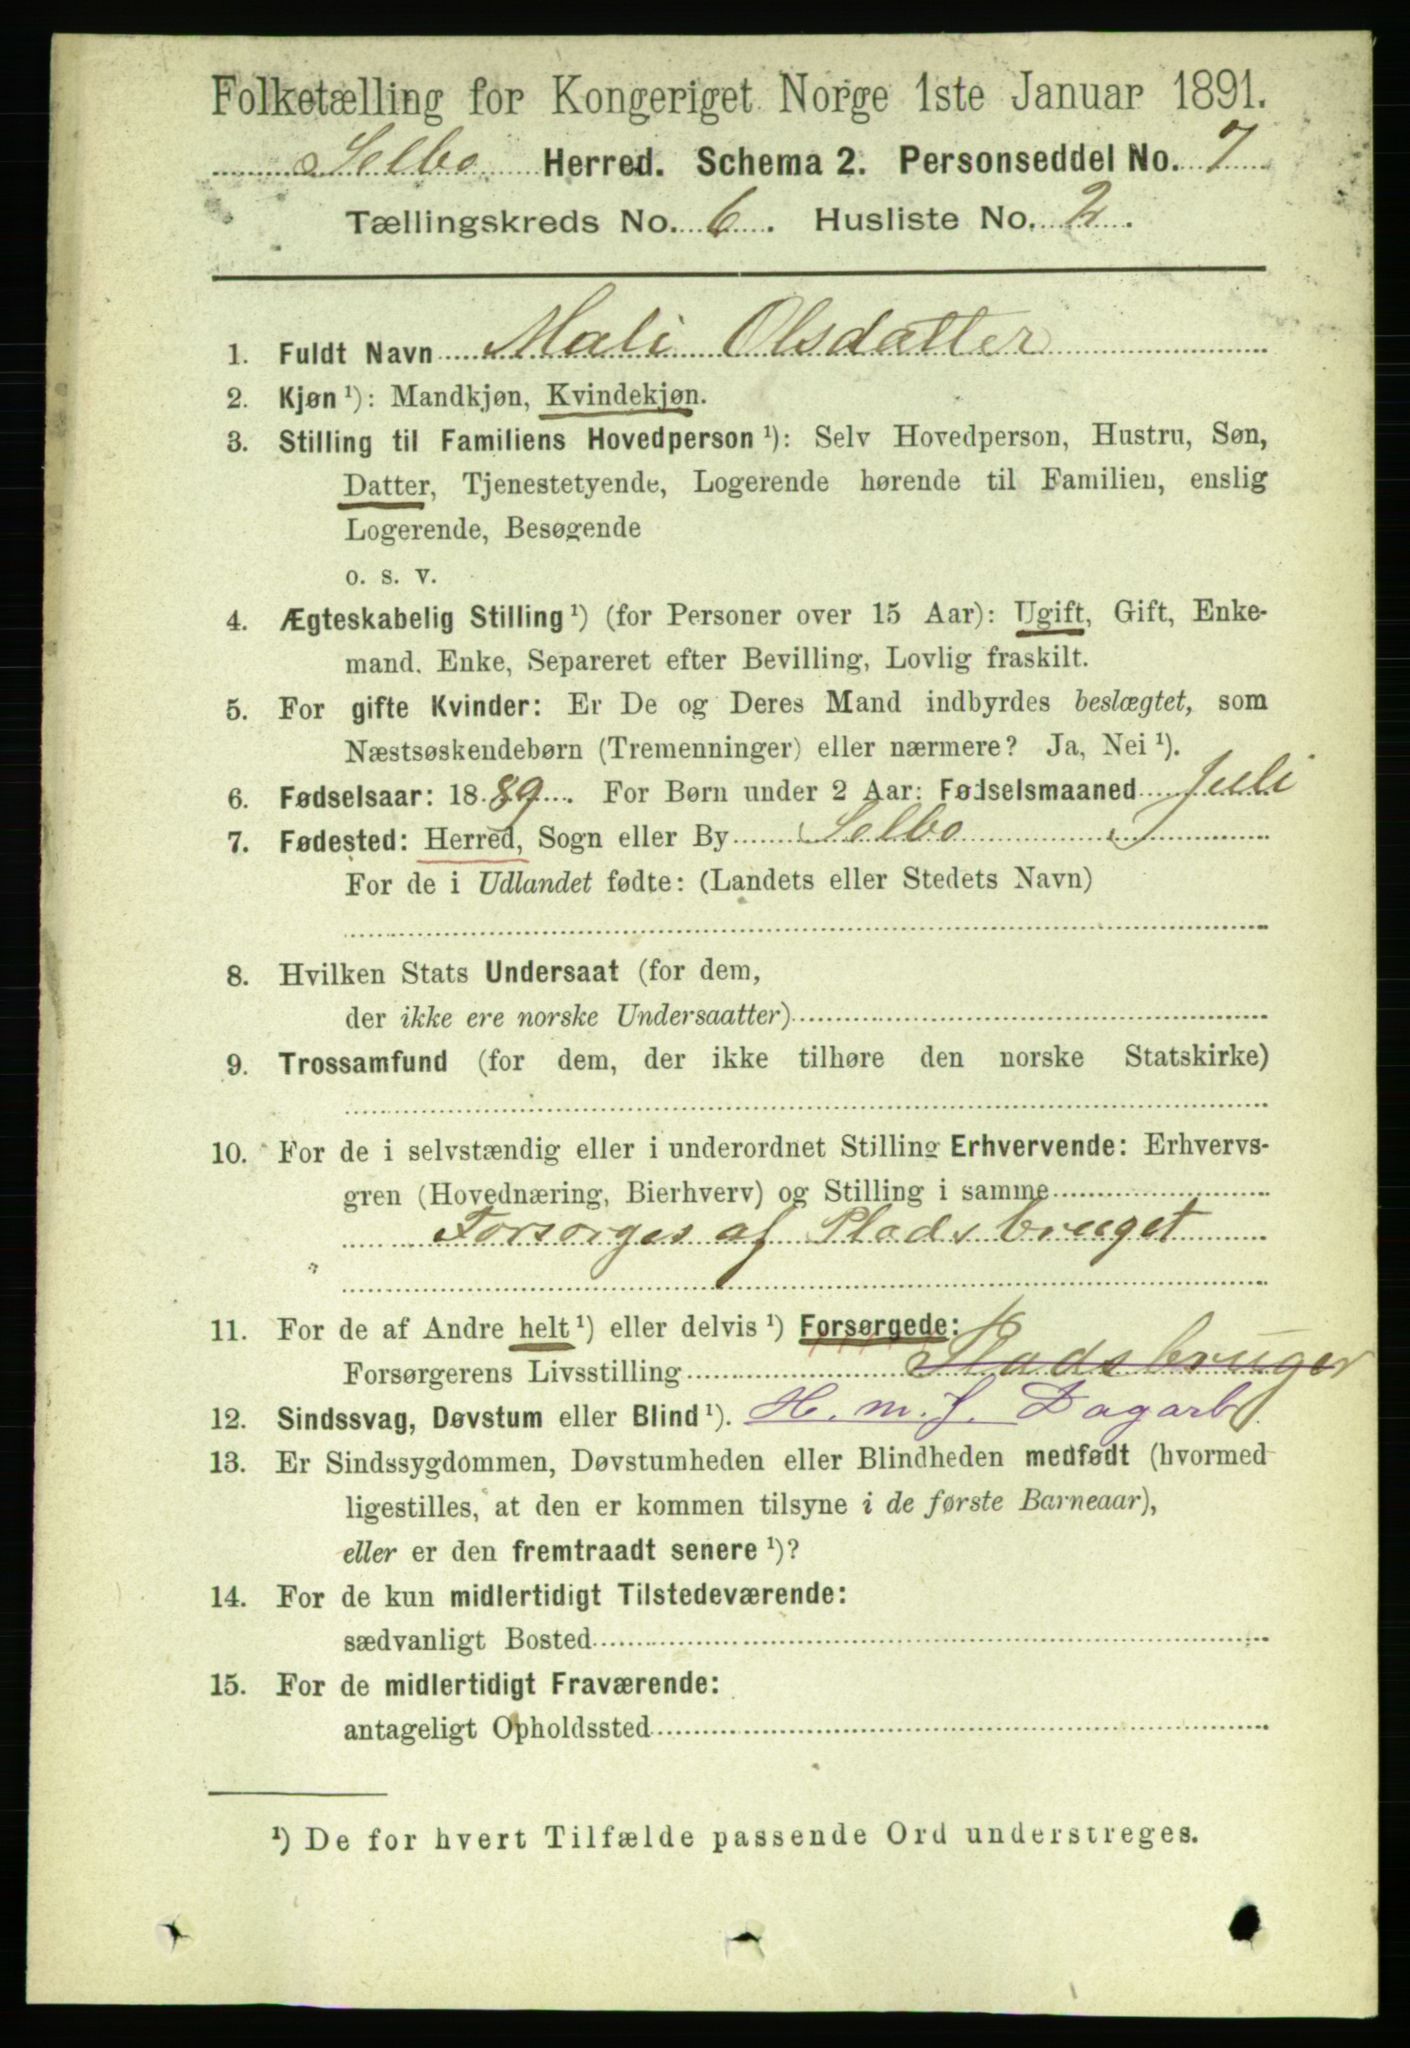 Folketælling for Kongeriget Norge 1ste Januar 1891.
Selbo Herred. Schema 2. Personseddel No. 7
Tællingskreds No. 6. Husliste No. 2.
1. Fuldt Navn Mali Olsdatter
2. Kjøn ¹): Mandkjøn, Kvindekjøn.
3. Stilling til Familiens Hovedperson ¹): Selv Hovedperson, Hustru, Søn,
Datter, Tjenestetyende, Logerende hørende til Familien, enslig
Logerende, Besøgende
o. s. v.
4. Ægteskabelig Stilling ¹) (for Personer over 15 Aar): Ugift, Gift, Enke-
mand. Enke, Separeret efter Bevilling, Lovlig fraskilt.
5. For gifte Kvinder: Er De og Deres Mand indbyrdes beslægtet, som
Næstsøskendebørn (Tremenninger) eller nærmere? Ja, Nei ¹).
6. Fødselsaar: 1889. For Børn under 2 Aar: Fødselsmaaned Juli
7. Fødested: Herred, Sogn eller By Selbo
For de i Udlandet fødte: (Landets eller Stedets Navn)
8. Hvilken Stats Undersaat (for dem,
der ikke ere norske Undersaatter)
9. Trossamfund (for dem, der ikke tilhøre den norske Statskirke)
10. For de i selvstændig eller i underordnet Stilling Erhvervende: Erhvervs-
gren (Hovednæring, Bierhverv) og Stilling i samme
Forsorges af Pladsbruget
11. For de af Andre helt ¹) eller delvis ¹) Forsørgede:
Forsørgerens Livsstilling Pladsbruger
12. Sindssvag, Døvstum eller Blind ¹). H. m. f. Dagarb.
13. Er Sindssygdommen, Døvstumheden eller Blindheden medfødt (hvormed
ligestilles, at den er kommen tilsyne i de første Barneaar),
eller er den fremtraadt senere ¹)?
14. For de kun midlertidigt Tilstedeværende:
sædvanligt Bosted
15. For de midlertidigt Fraværende:
antageligt Opholdssted
¹) De for hvert Tilfælde passende Ord understreges.